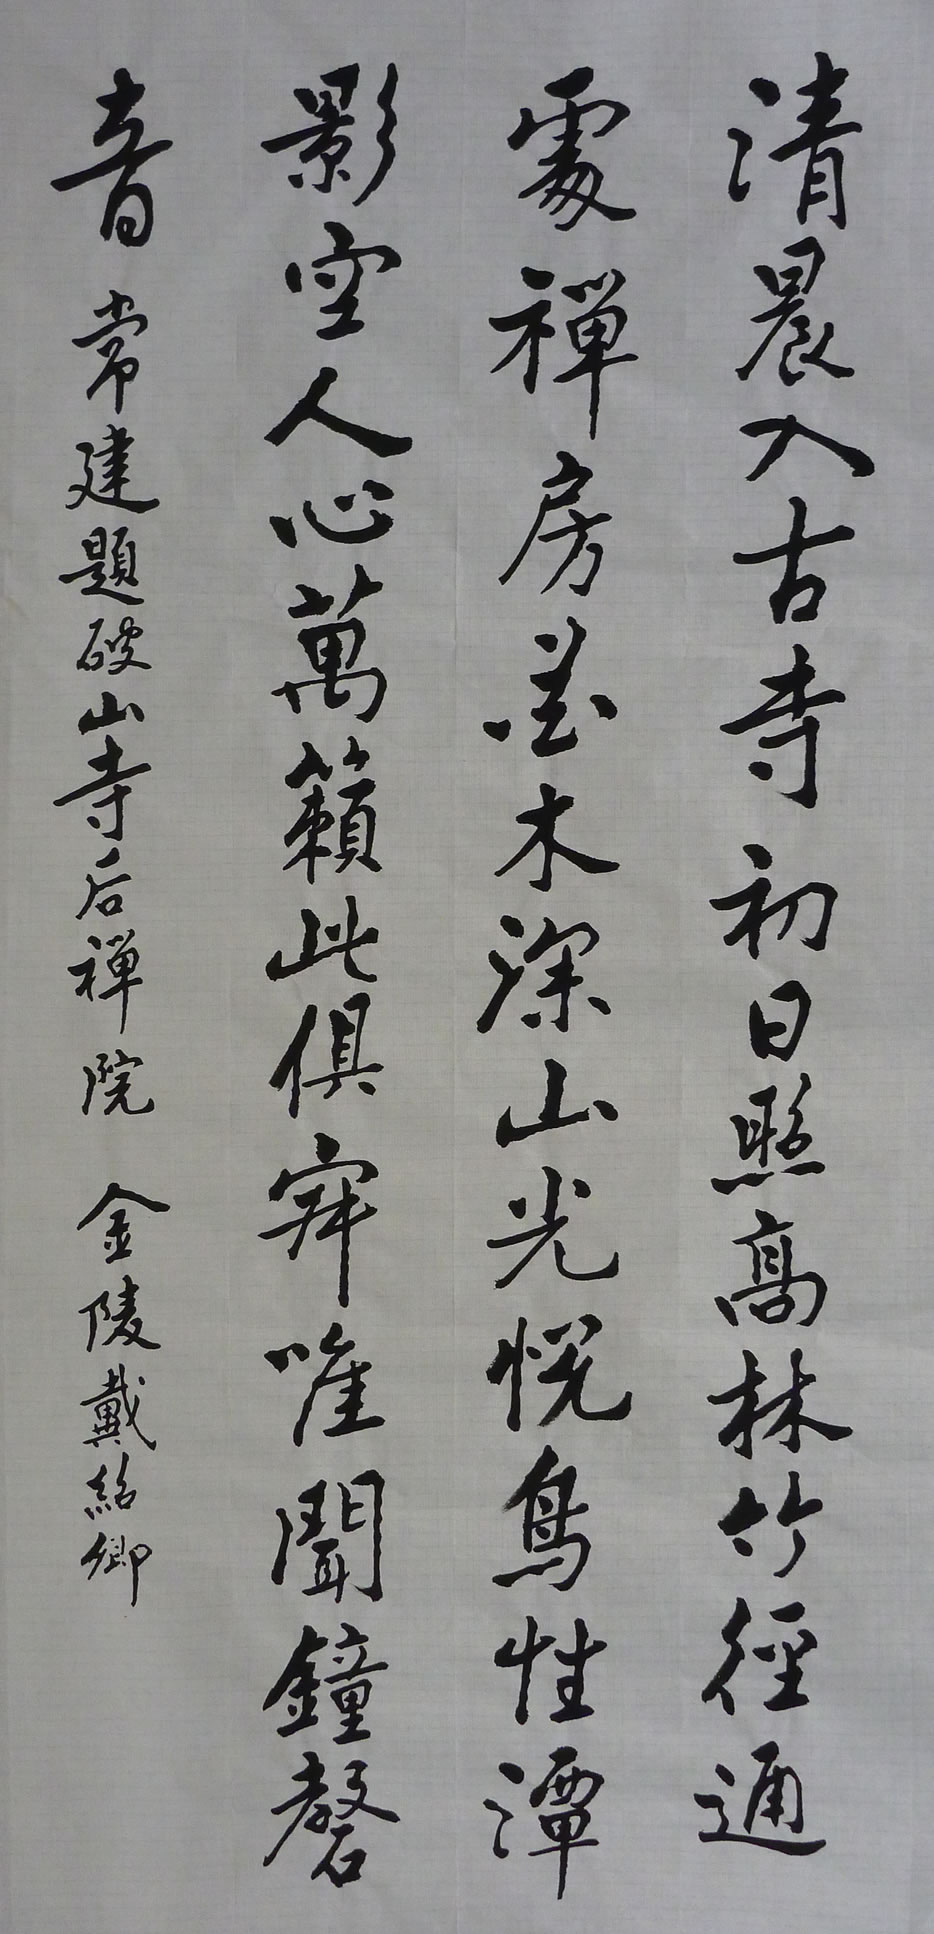 清晨入古寺初日照高林竹徑通
處禪房花木深山光悅鳥性潭
影空人心萬籟此俱寂唯聞鐘磬
音 常建題破山寺后禪院 金陵戴紹卿